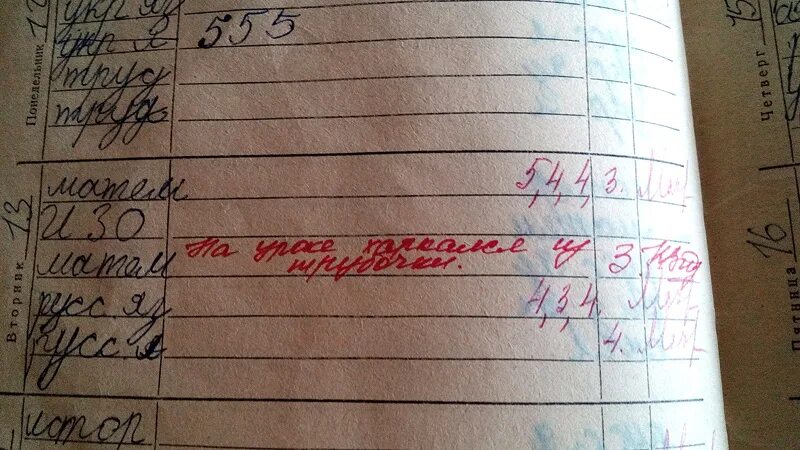 укр яз
укр я 555
труд
труд
Понедельник
Четверг 15
матем 5,4,4,3.
ИЗО
На уроке харкался из
матем 3
трубочки.
русс. яз 4,3,4.
русс. я 4.
Вторник 13
Пятница 16
истор